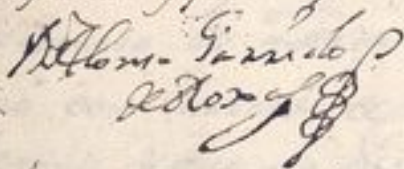 Dn Alonso Garrido
de Roxas